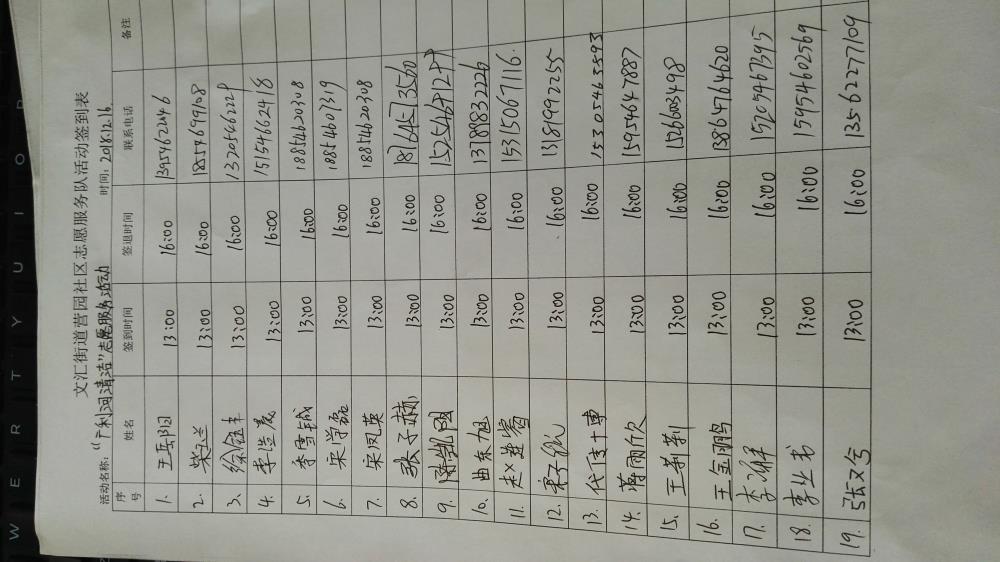 W E R T Y U I O P
文汇街道营园社区志愿服务队活动签到表
活动名称：“广利河清洁”志愿服务活动 时间：2018.12.16
序号 姓名 签到时间 签退时间 联系电话 备注
1. 王岳阳 13:00 16:00
2. 13:00 16:00 18554699108
3. 徐钰丰 13:00 16:00 13205462228
4. 李浩晨 13:00 16:00 15154662418
5. 李雪铖 13:00 16:00 18854620308
6. 宋学磊 13:00 16:00
7. 宋凤英 13:00 16:00 18854620308
8. 张子赫 13:00 16:00
9. 陈凯凤 13:00 16:00
10. 曲东旭 13:00 16:00 13789832226
11. 赵楚 13:00 16:00 15315067116.
12. 13:00 16:00 13181992255
13. 代传博 13:00 16:00 15305463893
14. 蒋丽欣 13:00 16:00 15954647887
15. 王莉莉 13:00 16:00 15266003498
16. 王金鹏 13:00 16:00 13864764620
17. 李 13:00 16:00 15205467395
18. 李业书 13:00 16:00 15954602569
19. 13:00 16:00 13562277109